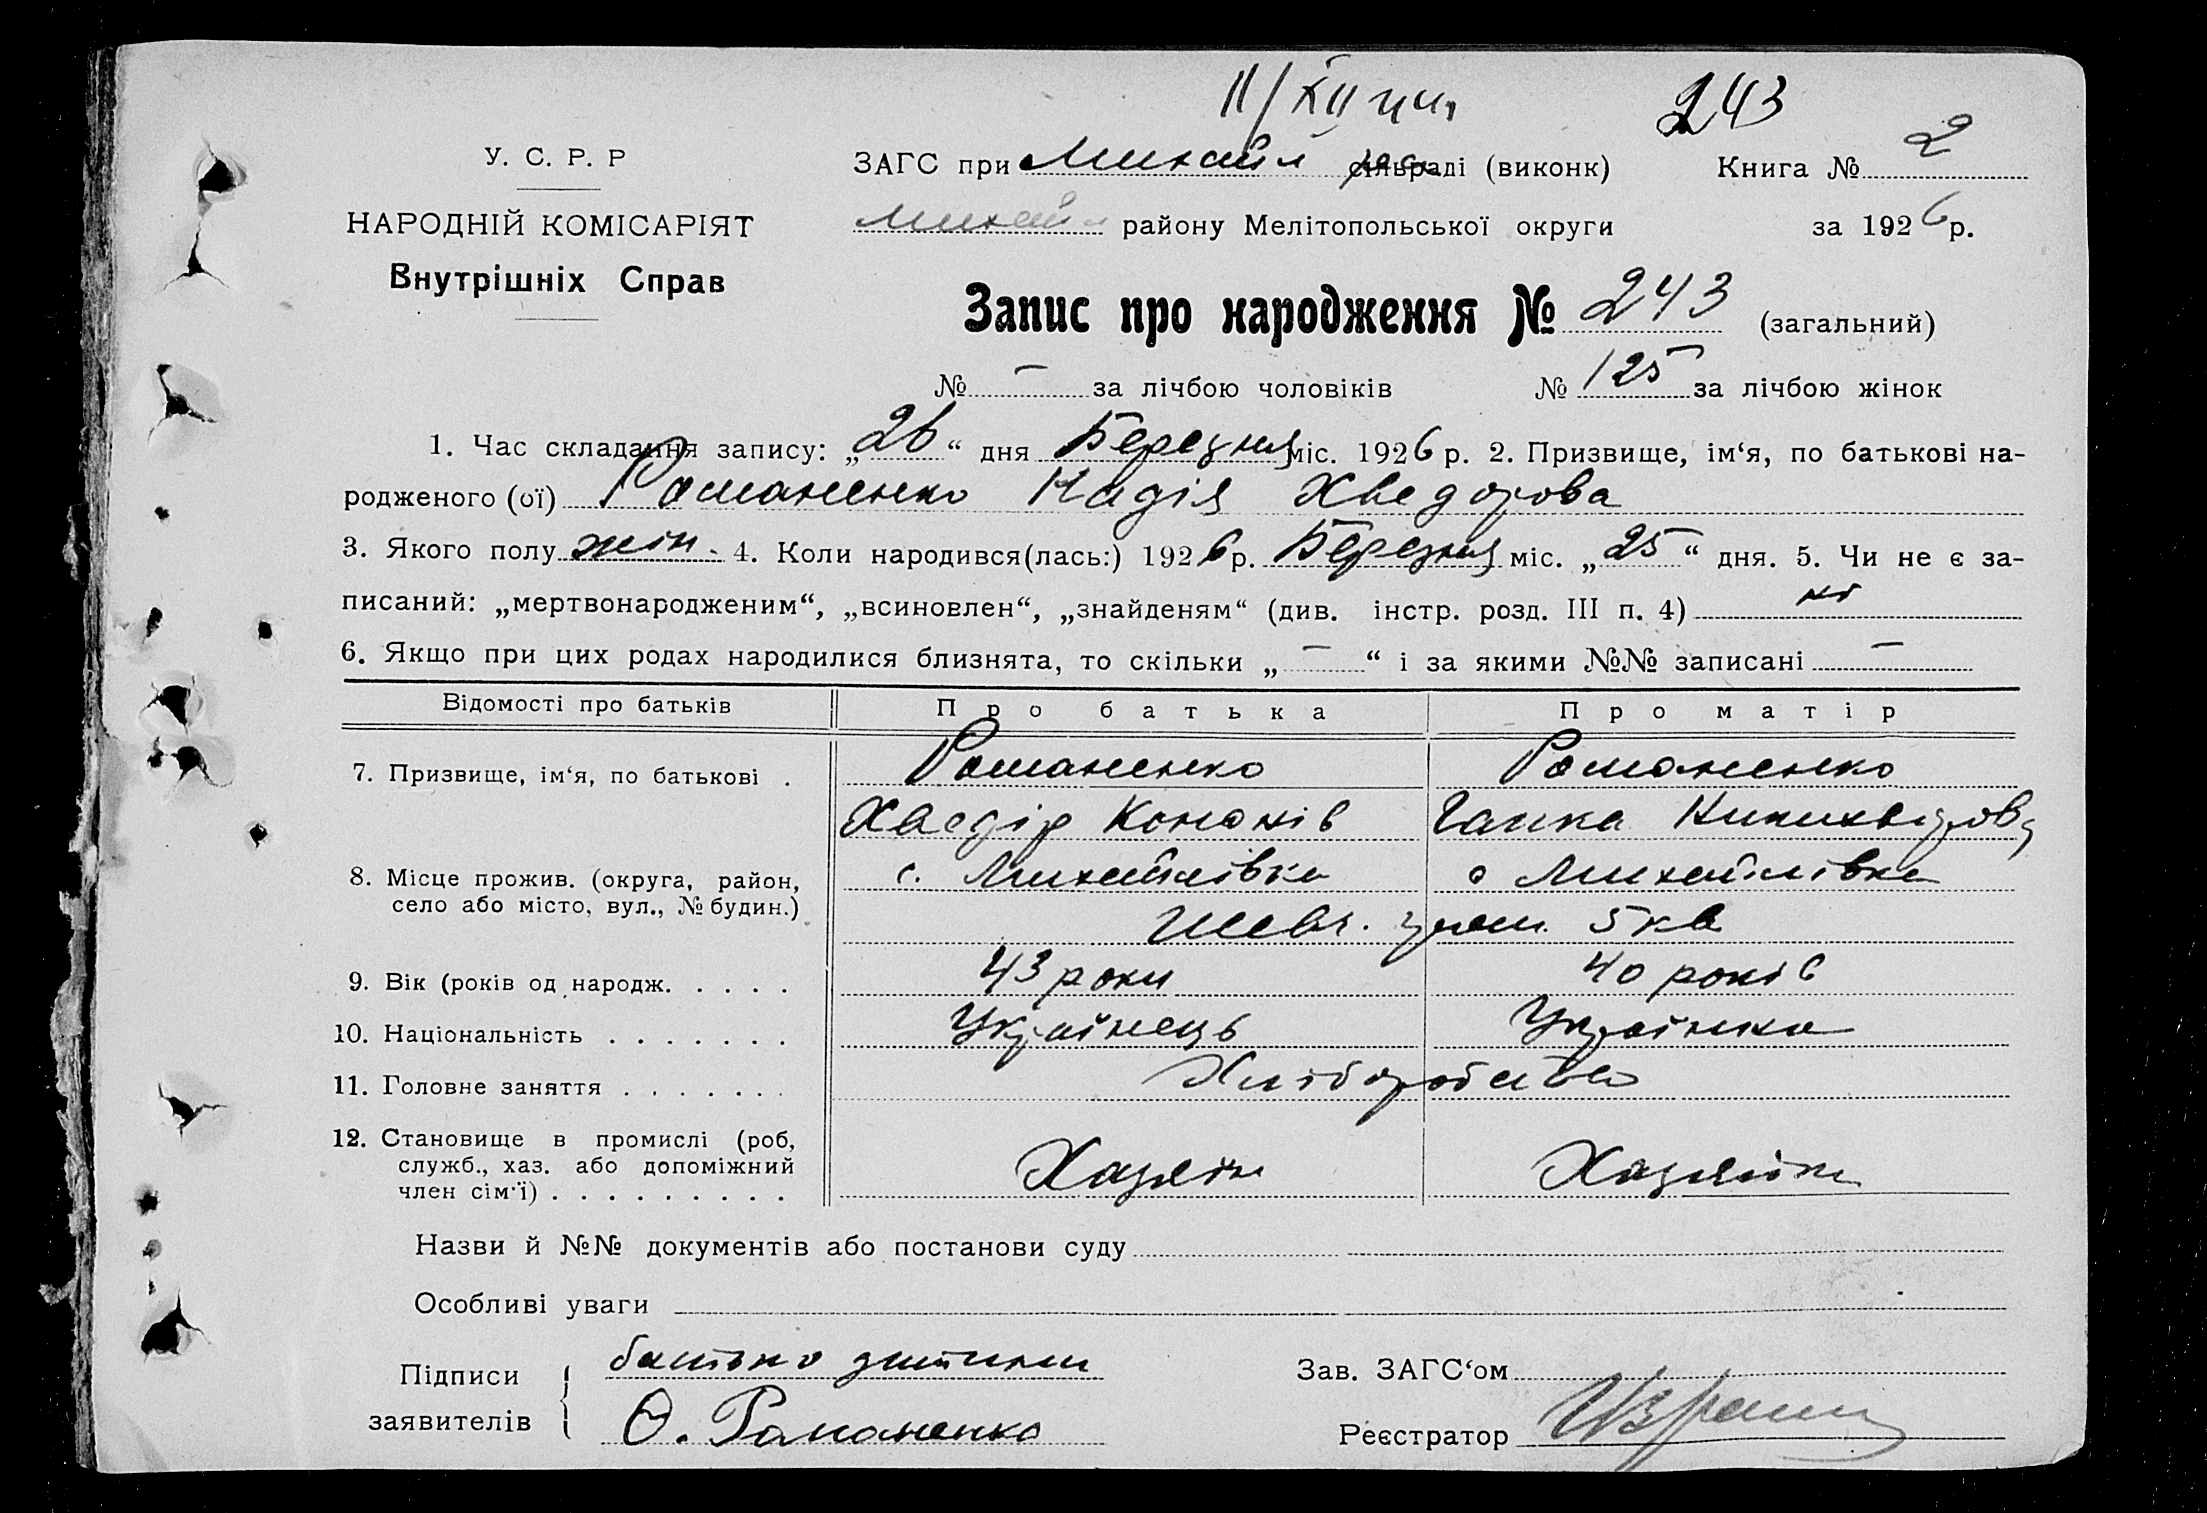 243
У. С. Р. Р
ЗАГС при Михайл сільраді (виконк) Книга № 2
НАРОДНІЙ КОМІСАРІЯТ
Михайл району Мелітопольської округи за 1926 р.
Внутрішніх Справ
Запис про народження № 243 (загальний)
№ – за лічбою чоловіків № 125 за лічбою жінок
1. Час складання запису: „26“ дня Березня міс. 1926 р. 2. Призвище, ім‘я, по батькові на-
родженого (ої) Романенко Надія Хведорова
3. Якого полу жін. 4. Коли народився(лась:) 1926 р. Березня міс. „25“ дня. 5. Чи не є за-
писаний: „мертвонародженим“, „всиновлен“, „знайденям“ (див. інстр. розд. III п. 4) ні
6. Якщо при цих родах народилися близнята, то скільки „–“ і за якими №№ записані –
Відомості про батьків Про батька Про матір
7. Призвище, ім‘я, по батькові . Романенко Романенко
Хведір Кононів Ганка
8. Місце прожив. (округа, район, с. Михайлівка с Михайлівка
село або місто, вул., № будин.) Шевч. 5 кв
9. Вік (років од народж. . . . . 43 роки 40 років
10. Національність . . . . . . . Українець Українка
11. Головне заняття . . . . . . . Хліборобство
12. Становище в промислі (роб,
служб., хаз. або допоміжний Хазяїн Хазяйка
член сім‘ї) . . . . . . . . . .
Назви й №№ документів або постанови суду
Особливі уваги
Підписи батько дитини Зав. ЗАГС‘ом
заявителів Ѳ. Романенко Реєстратор